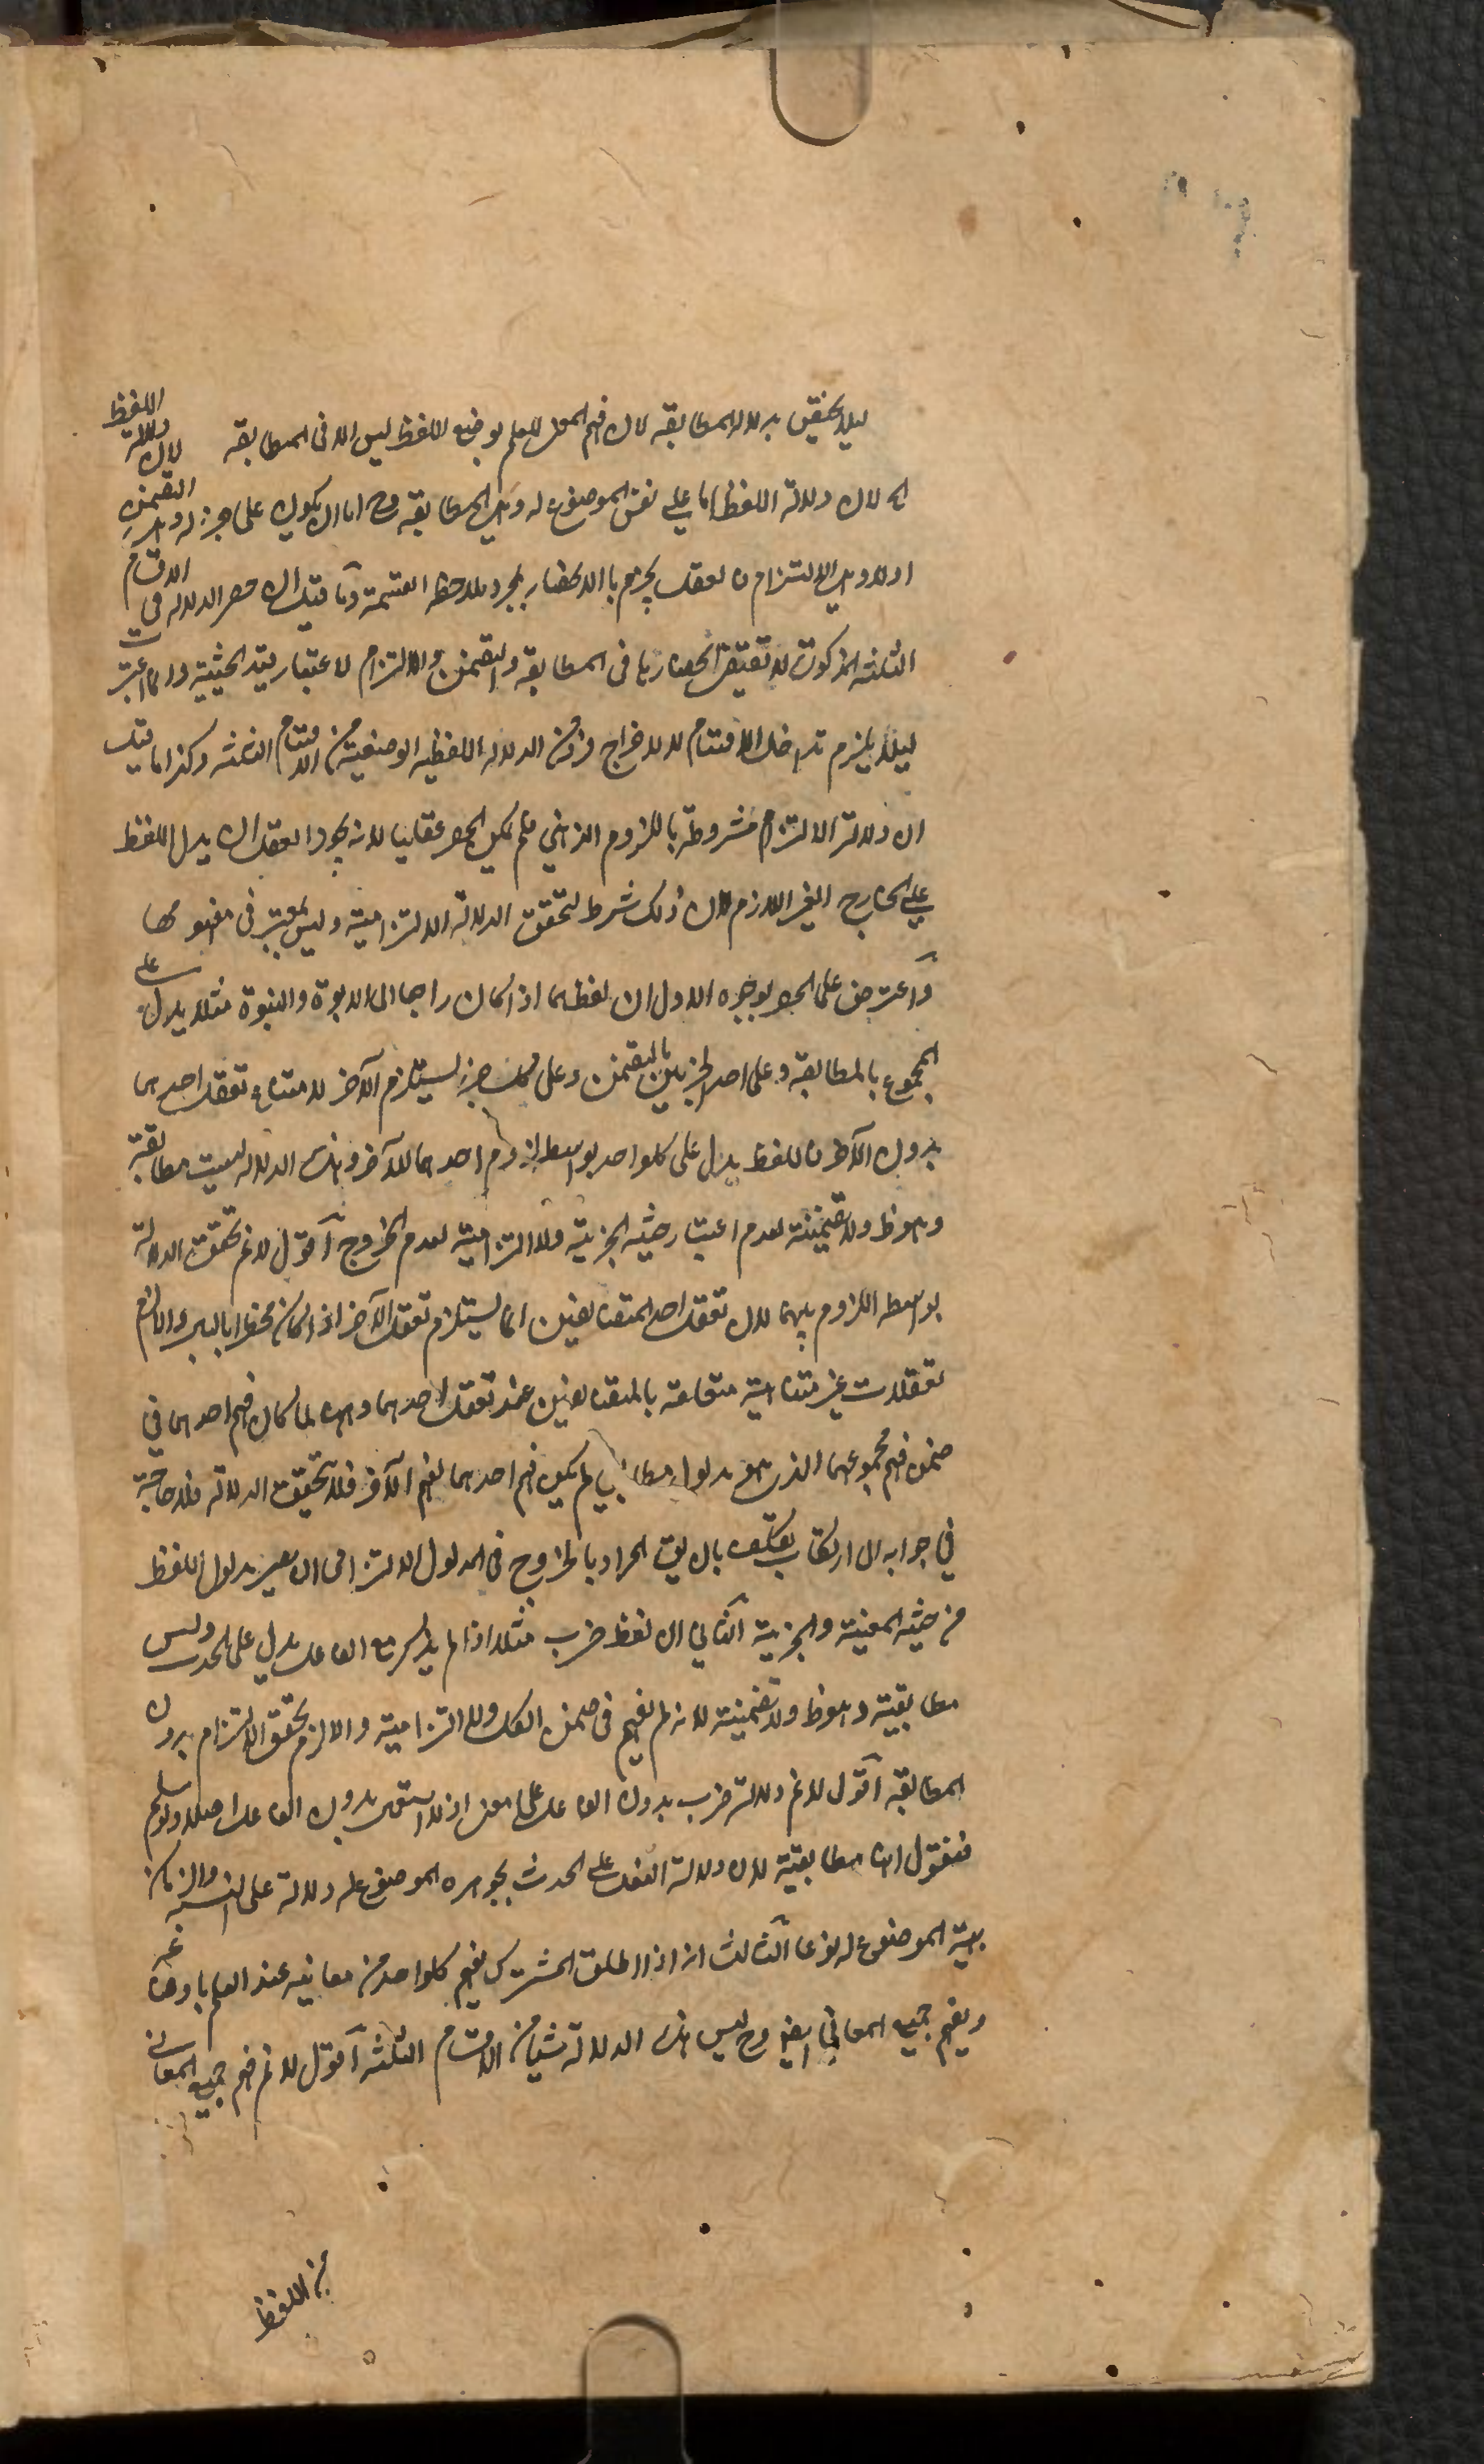 ليلا يختص بدلالة المطابقة لان فهم المعنى للعلم بوضع اللفظ ليس الا فى المطابقة لان دلالة اللفظ
لان دلالة اللفظ اما على نفس الموضوع له وهى المطابقة وح اما ان يكون على جزئه وهى التضمن
اولا وهى الالتزام فالعقل يجزم بالانحصار بمجرد ملاحظة القسمة وما قيل ان حصر الدلالة فى الاقسام
الثلثة المذكورة لا تقتضى انحصارها فى المطابقة والتضمن والالتزام لاعتبار قيد الحيثية وانما اعتبرت
ليلا يلزم تداخل الاقسام لا لاخراج فرد من الدلالة اللفظية الوضعية من الاقسام الثلثة وكذا ما قيل
ان دلالة الالتزام مشروطة باللزوم الذهني فلم يكن الحصر عقليا لانه يجوز العقل ان يدل اللفظ
على الخارج الغير اللازم لان ذلك شرط لتحقق الدلالة الالتزامية وليس بمعتبر فى مفهومها
واعترض على الحصر بوجوه الاول ان لفظهما اذا كان راجعا الى الابوة والبنوة مثلا يدل على
المجموع بالمطابقة وعلى احد الجزئين بالتضمن وعلى كل جزء يستلزم الآخر لامتناع تعقل احدهما
بدون الآخر فاللفظ يدل على كلواحد بواسطة لزوم احدهما للآخر وهذه الدلالة ليست مطابقة
وهو ظ ولا تضمنية لعدم اعتبار حيثية الجزئية ولا التزامية لعدم الخروج اقول لانم تحقق الدلالة
بواسطة اللزوم بينهما لان تعقل احد المتضايفين انما يستلزم تعقل الآخر اذا كان مخطرا بالبال والا لزم
تعقلات غير متناهية متعلقة بالمتضايفين عند تعقل احدهما وههنا لما كان فهم احدهما فى
ضمن فهم مجموعهما الذى هو مدلول مطابقى لم يكن فهم احدهما لفهم الآخر فلا تحقق الدلالة فلا حاجة
فى جوابه الى ارتكاب تكلف بان يق المراد بالخروج فى المدلول الالتزامى ان يعتبر مدلول اللفظ
من حيثية المعنية والجزئية الثانى ان لفظ ضرب مثلا اذا لم يذكر مع الفاعل يدل على الحدث وليس
مطابقية وهو ظ ولا تضمنية لانه لم يفهم فى ضمن الكل ولا التزامية والا لزم تحقق الالتزام بدون
المطابقة اقول لانم دلالة ضرب بدون الفاعل على معنى اذ لا يستعمل بدون الفاعل اصلا ولو سلم
فنقول انها مطابقية لان دلالة الفعل على الحدث بجوهره الموضوع له ودلالة على النسبة والزمان
بهيئة الموضوع له نوعا الثالث انه اذا اطلق المشترك يفهم كلواحد من معانيه عند العلم باوضاعه
ويفهم جميع المعانى ايضا وح ليس هذه الدلالة شيئا من الاقسام الثلثة اقول لانم فهم جميع المعانى
من اللفظ